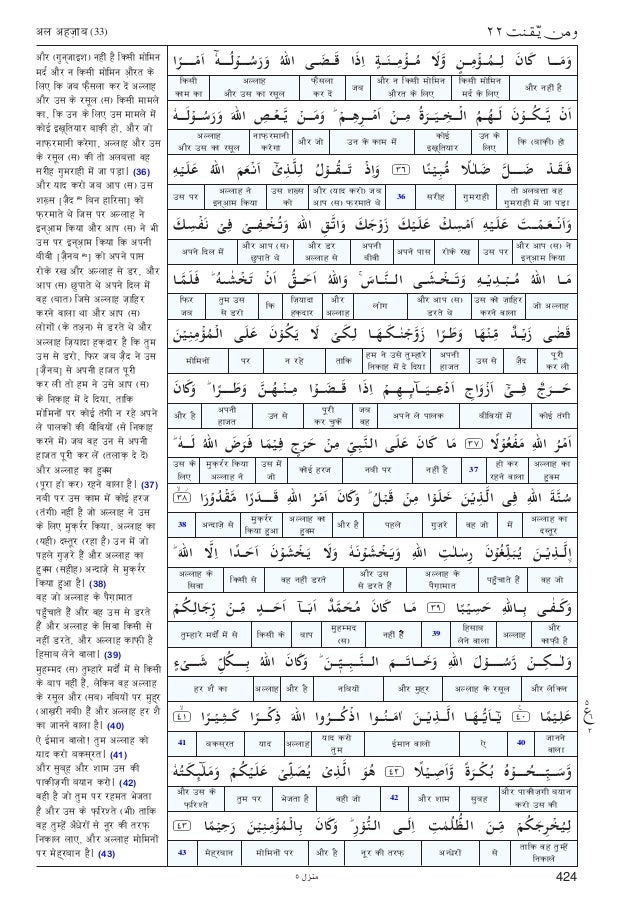 अल अहज़ाब (33)
ومن يّقنت ٢٢
और (गुन्जाइश) नहीं है किसी मोमिन
मर्द और न किसी मोमिन औरत के
लिए कि जब फ़ैसला कर दें अल्लाह
और उस के रसूल (स) किसी मामले
का, कि उन के लिए उस मामले में
कोई इख़्तियार बाकी हो, और जो
नाफ़रमानी करेगा, अल्लाह और उस
के रसूल (स) की तो अलबत्ता वह
सरीह गुमराही में जा पड़ा। (36)
और याद करो जब आप (स) उस
शख़्स [ज़ैद बिन हारिसा] को
फ़रमाते थे जिस पर अल्लाह ने
इन्आम किया और आप (स) ने भी
उस पर इन्आम किया कि अपनी
बीवी [ज़ैनब] को अपने पास
रोके रख और अल्लाह से डर, और
आप (स) छुपाते थे अपने दिल में
वह (बात) जिसे अल्लाह ज़ाहिर
करने वाला था और आप (स)
लोगों (के तअन) से डरते थे और
अल्लाह ज़ियादा हक़दार है कि तुम
उस से डरो, फिर जब ज़ैद ने उस
[ज़ैनब] से अपनी हाजत पूरी
कर ली तो हम ने उसे आप (स)
के निकाह में दे दिया, ताकि
मोमिनों पर कोई तंगी न रहे अपने
ले पालकों की बीवियों (से निकाह
करने में) जब वह उन से अपनी
हाजत पूरी कर लें (तलाक़ दे दें)
और अल्लाह का हुक्म
(पूरा हो कर) रहने वाला है। (37)
नबी पर उस काम में कोई हरज
(तंगी) नहीं है जो अल्लाह ने उस
के लिए मुक़र्रर किया, अल्लाह का
(यही) दस्तूर (रहा है) उन में जो
पहले गुज़रे हैं और अल्लाह का
हुक्म (सहीह) अन्दाज़े से मुक़र्रर
किया हुआ है। (38)
वह जो अल्लाह के पैग़ामात
पहुँचाते हैं और वह उस से डरते
हैं और अल्लाह के सिवा किसी से
नहीं डरते, और अल्लाह काफ़ी है
हिसाब लेने वाला। (39)
मुहम्मद (स) तुम्हारे मर्दों में से किसी
के बाप नहीं हैं, लेकिन वह अल्लाह
के रसूल और (सब) नबियों पर मुहर
(आख़री नबी) हैं और अल्लाह हर शै
का जानने वाला है। (40)
ऐ ईमान वालो! तुम अल्लाह को
याद करो बकस्रत। (41)
और सुबह और शाम उस की
पाकीज़गी बयान करो। (42)
वही है जो तुम पर रहमत भेजता
है और उस के फ़रिश्ते (भी) ताकि
वह तुम्हें अँधेरों से नूर की तरफ़
निकाल लाए, और अल्लाह मोमिनों
पर मेहरबान है। (43)
وَمَا كَانَ لِمُؤْمِنٍ وَّلَا مُؤْمِنَةٍ اِذَا قَضَى اللّٰهُ وَرَسُوْلُهٗٓ اَمْرًا
किसी अल्लाह फ़ैसला जब और न किसी मोमिन किसी मोमिन और नहीं है
काम का और उस का रसूल कर दें औरत के लिए मर्द के लिए
اَنْ يَّكُوْنَ لَهُمُ الْخِيَرَةُ مِنْ اَمْرِهِمْ ؕ وَمَنْ يَّعْصِ اللّٰهَ وَرَسُوْلَهٗ
अल्लाह नाफ़रमानी और जो उन के काम में कोई उन के कि (बाकी) हो
और उस का रसूल करेगा इख़्तियार लिए
فَقَدْ ضَلَّ ضَلٰلًا مُّبِيْنًا ٣٦ وَاِذْ تَقُوْلُ لِلَّذِيْٓ اَنْعَمَ اللّٰهُ عَلَيْهِ
उस पर अल्लाह ने उस शख़्स और (याद करो) जब 36 सरीह गुमराही तो अलबत्ता वह
इन्आम किया को आप (स) फ़रमाते थे गुमराही में जा पड़ा
وَاَنْعَمْتَ عَلَيْهِ اَمْسِكْ عَلَيْكَ زَوْجَكَ وَاتَّقِ اللّٰهَ وَتُخْفِيْ فِيْ نَفْسِكَ
अपने दिल में और आप (स) और डर अपनी अपने पास रोके रख उस पर और आप (स) ने
छुपाते थे अल्लाह से बीवी इन्आम किया
مَا اللّٰهُ مُبْدِيْهِ وَتَخْشَى النَّاسَ ۚ وَاللّٰهُ اَحَقُّ اَنْ تَخْشٰىهُ ؕ فَلَمَّا
फिर तुम उस कि ज़ियादा और लोग और आप (स) उस को ज़ाहिर जो अल्लाह
जब से डरो हक़दार अल्लाह डरते थे करने वाला
قَضٰى زَيْدٌ مِّنْهَا وَطَرًا زَوَّجْنٰكَهَا لِكَيْ لَا يَكُوْنَ عَلَى الْمُؤْمِنِيْنَ
मोमिनों पर न रहे ताकि हम ने उसे तुम्हारे अपनी उस से ज़ैद पूरी
निकाह में दे दिया हाजत कर ली
حَرَجٌ فِيْٓ اَزْوَاجِ اَدْعِيَآئِهِمْ اِذَا قَضَوْا مِنْهُنَّ وَطَرًا ؕ وَكَانَ
और है अपनी उन से पूरी जब अपने ले पालक बीवियों में कोई तंगी
हाजत कर चुकें वह
اَمْرُ اللّٰهِ مَفْعُوْلًا ٣٧ مَا كَانَ عَلَى النَّبِيِّ مِنْ حَرَجٍ فِيْمَا فَرَضَ اللّٰهُ لَهٗ ؕ
उस के मुक़र्रर किया उस में कोई हरज नबी पर नहीं है 37 हो कर अल्लाह का
लिए अल्लाह ने जो रहने वाला हुक्म
سُنَّةَ اللّٰهِ فِي الَّذِيْنَ خَلَوْا مِنْ قَبْلُ ؕ وَكَانَ اَمْرُ اللّٰهِ قَدَرًا مَّقْدُوْرًا ٣٨
38 अन्दाज़े से मुक़र्रर अल्लाह का और है पहले गुज़रे वह जो में अल्लाह का
किया हुआ हुक्म दस्तूर
الَّذِيْنَ يُبَلِّغُوْنَ رِسٰلٰتِ اللّٰهِ وَيَخْشَوْنَهٗ وَلَا يَخْشَوْنَ اَحَدًا اِلَّا اللّٰهَ ؕ
अल्लाह के किसी से वह नहीं डरते और उस अल्लाह के पहुँचाते हैं वह जो
सिवा से डरते हैं पैग़ामात
وَكَفٰى بِاللّٰهِ حَسِيْبًا ٣٩ مَا كَانَ مُحَمَّدٌ اَبَآ اَحَدٍ مِّنْ رِّجَالِكُمْ
तुम्हारे मर्दों में से किसी के बाप मुहम्मद नहीं हैं 39 हिसाब अल्लाह और
(स) लेने वाला काफ़ी है
وَلٰكِنْ رَّسُوْلَ اللّٰهِ وَخَاتَمَ النَّبِيّٖنَ ؕ وَكَانَ اللّٰهُ بِكُلِّ شَيْءٍ
हर शै का अल्लाह और है नबियों और मुहर अल्लाह के रसूल और लेकिन
عَلِيْمًا ٤٠ يٰٓاَيُّهَا الَّذِيْنَ اٰمَنُوا اذْكُرُوا اللّٰهَ ذِكْرًا كَثِيْرًا ٤١
41 बकस्रत याद अल्लाह याद करो ईमान वालो ऐ 40 जानने
तुम वाला
وَّسَبِّحُوْهُ بُكْرَةً وَّاَصِيْلًا ٤٢ هُوَ الَّذِيْ يُصَلِّيْ عَلَيْكُمْ وَمَلٰٓئِكَتُهٗ
और उस के तुम पर भेजता है वही जो 42 और शाम सुबह और पाकीज़गी बयान
फ़रिश्ते करो उस की
لِيُخْرِجَكُمْ مِّنَ الظُّلُمٰتِ اِلَى النُّوْرِ ؕ وَكَانَ بِالْمُؤْمِنِيْنَ رَحِيْمًا ٤٣
43 मेहरबान मोमिनों पर और है नूर की तरफ़ अन्धेरों से ताकि वह तुम्हें
निकाले
منزل ٥
424